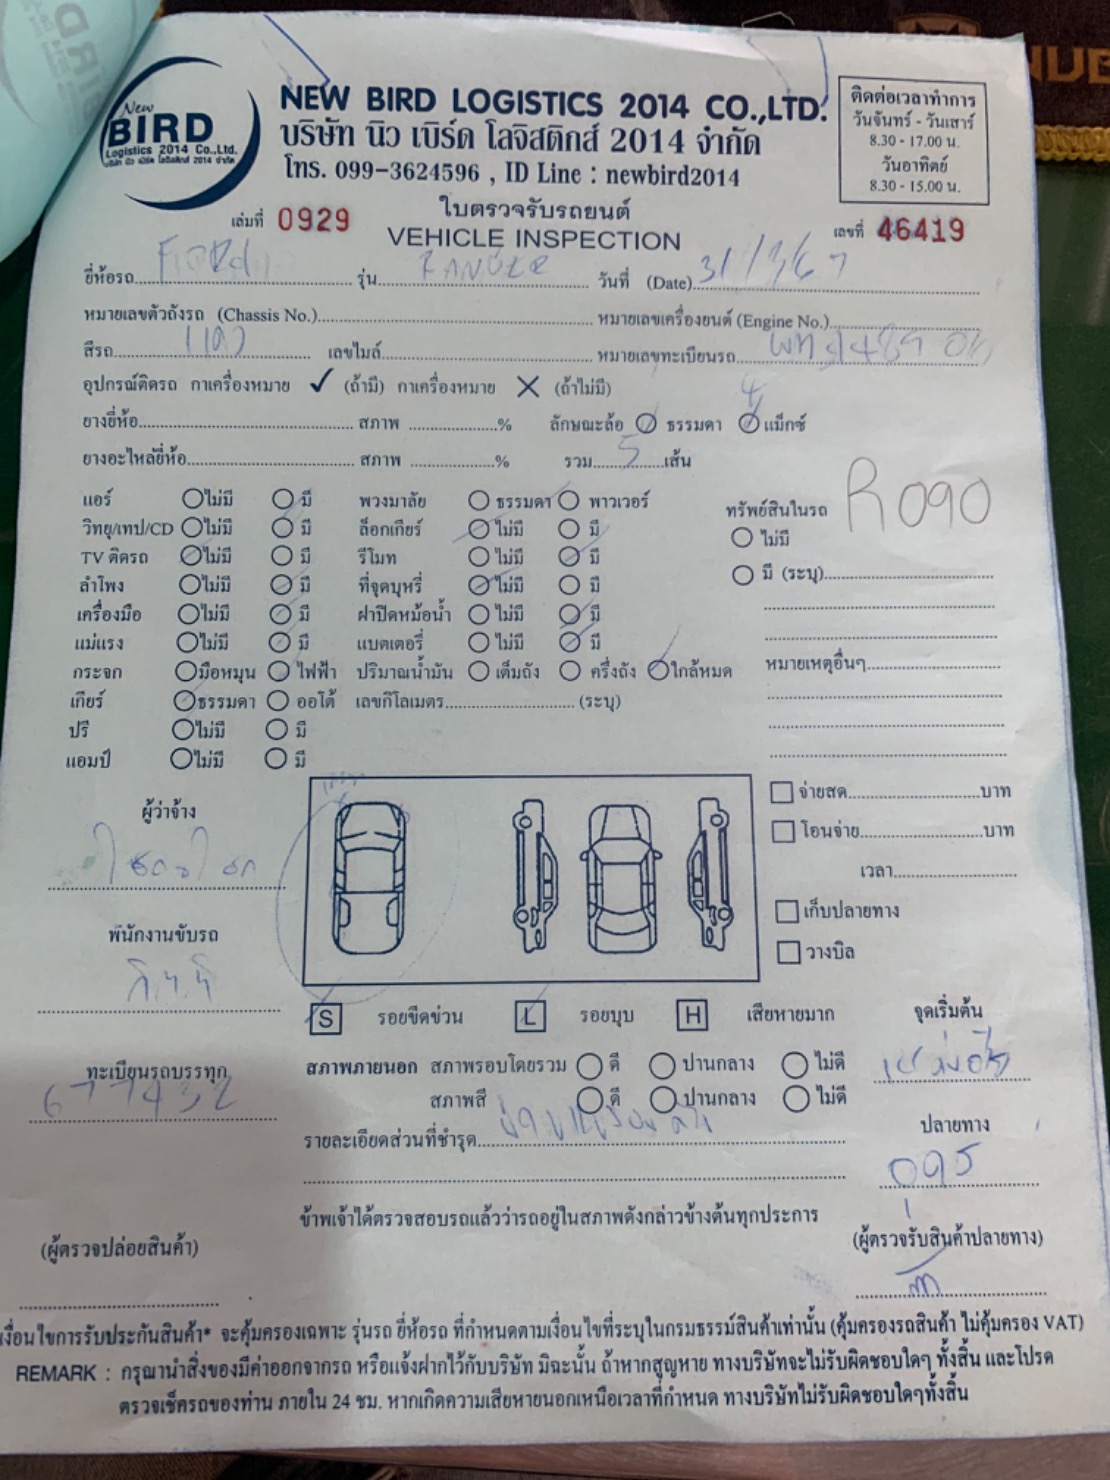 New
BIRD
Logistics 2014 Co.,Ltd.
บริษัท นิว เบิร์ด โลจิสติกส์ 2014 จำกัด
NEW BIRD LOGISTICS 2014 CO.,LTD.
บริษัท นิว เบิร์ด โลจิสติกส์ 2014 จำกัด
โทร. 099-3624596 , ID Line : newbird2014
ติดต่อเวลาทำการ
วันจันทร์ - วันเสาร์
8.30 - 17.00 น.
วันอาทิตย์
8.30 - 15.00 น.
เล่มที่ 0929
ใบตรวจรับรถยนต์
VEHICLE INSPECTION
เลขที่ 46419
ยี่ห้อรถ Ford รุ่น RANGER วันที่ (Date) 31/3/67
หมายเลขตัวถังรถ (Chassis No.) หมายเลขเครื่องยนต์ (Engine No.)
สีรถ เลขไมล์ หมายเลขทะเบียนรถ
อุปกรณ์ติดรถ กาเครื่องหมาย ✓ (ถ้ามี) กาเครื่องหมาย ✕ (ถ้าไม่มี)
4
ยางยี่ห้อ สภาพ % ลักษณะล้อ ธรรมดา แม็กซ์
ยางอะไหล่ยี่ห้อ สภาพ % รวม 5 เส้น
แอร์ ไม่มี มี พวงมาลัย ธรรมดา พาวเวอร์
วิทยุ/เทป/CD ไม่มี มี ล็อกเกียร์ ไม่มี มี
TV ติดรถ ไม่มี มี รีโมท ไม่มี มี
ลำโพง ไม่มี มี ที่จุดบุหรี่ ไม่มี มี
เครื่องมือ ไม่มี มี ฝาปิดหม้อน้ำ ไม่มี มี
แม่แรง ไม่มี มี แบตเตอรี่ ไม่มี มี
กระจก มือหมุน ไฟฟ้า ปริมาณน้ำมัน เต็มถัง ครึ่งถัง ใกล้หมด
เกียร์ ธรรมดา ออโต้ เลขกิโลเมตร (ระบุ)
ปรี ไม่มี มี
แอมป์ ไม่มี มี
R090
ทรัพย์สินในรถ
ไม่มี
มี (ระบุ)
หมายเหตุอื่นๆ
จ่ายสด บาท
โอนจ่าย บาท
เวลา
เก็บปลายทาง
วางบิล
ผู้ว่าจ้าง
พนักงานขับรถ
ทะเบียนรถบรรทุก
S รอยขีดข่วน L รอยบุบ H เสียหายมาก
จุดเริ่มต้น
สภาพภายนอก สภาพรอบโดยรวม ดี ปานกลาง ไม่ดี
สภาพสี ดี ปานกลาง ไม่ดี
รายละเอียดส่วนที่ชำรุด
ปลายทาง
ข้าพเจ้าได้ตรวจสอบรถแล้วว่ารถอยู่ในสภาพดังกล่าวข้างต้นทุกประการ
(ผู้ตรวจปล่อยสินค้า)
(ผู้ตรวจรับสินค้าปลายทาง)
เงื่อนไขการรับประกันสินค้า* จะคุ้มครองเฉพาะ รุ่นรถ ยี่ห้อรถ ที่กำหนดตามเงื่อนไขที่ระบุในกรมธรรม์สินค้าเท่านั้น (คุ้มครองรถสินค้า ไม่คุ้มครอง VAT)
REMARK : กรุณานำสิ่งของมีค่าออกจากรถ หรือแจ้งฝากไว้กับบริษัท มิฉะนั้น ถ้าหากสูญหาย ทางบริษัทจะไม่รับผิดชอบใดๆ ทั้งสิ้น และโปรด
ตรวจเช็ครถของท่าน ภายใน 24 ชม. หากเกิดความเสียหายนอกเหนือเวลาที่กำหนด ทางบริษัทไม่รับผิดชอบใดๆทั้งสิ้น